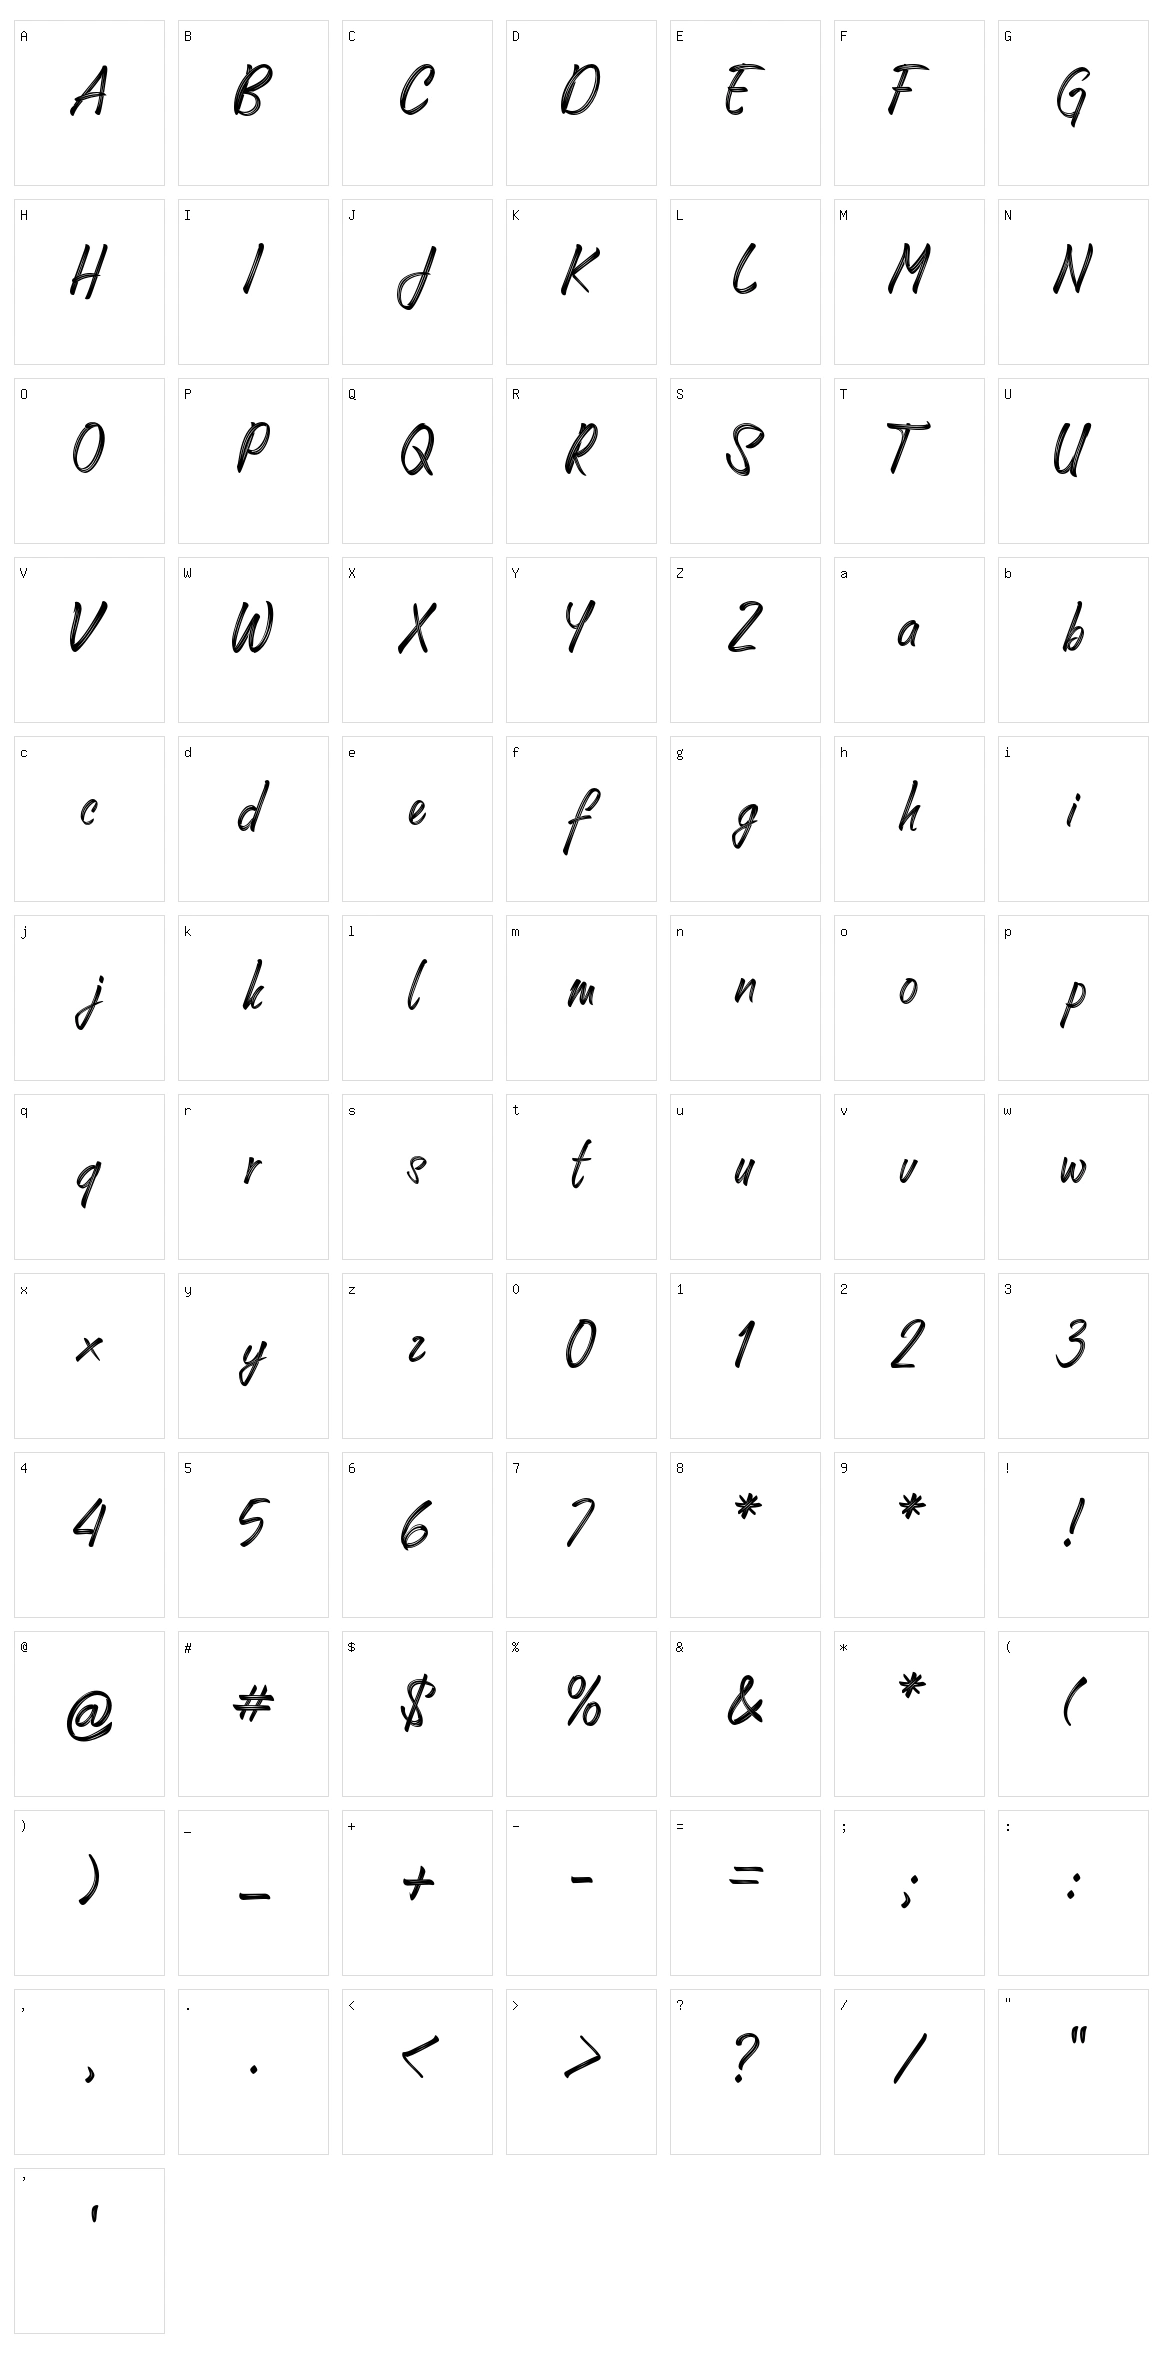 A B C D E F G
A B C D E F G
H I J K L M N
H I J K L M N
O P Q R S T U
O P Q R S T U
V W X Y Z a b
V W X Y Z a b
c d e f g h i
c d e f g h i
j k l m n o p
j k l m n o p
q r s t u v w
q r s t u v w
x y z 0 1 2 3
x y z 0 1 2 3
4 5 6 7 8 9 !
4 5 6 7 * * !
@ # $ % & * (
@ # $ % & * (
) _ + - = ; :
) _ + - = ; :
, . < > ? / "
, . < > ? / "
'
'